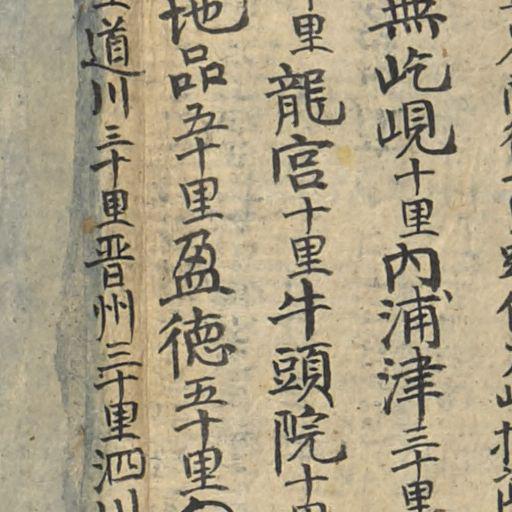 無屹峴十里內浦津三十里
十里龍宮十里牛頭院十里
地品五十里盈德五十里
道川三十里晋州三十里泗川